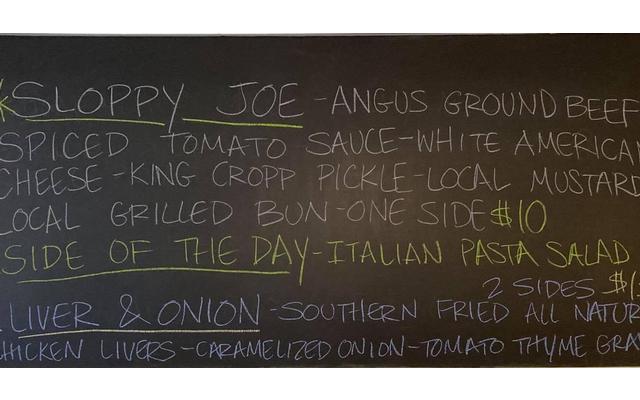 *SLOPPY JOE - ANGUS GROUND BEEF
SPICED TOMATO SAUCE - WHITE AMERICAN
CHEESE - KING CROPP PICKLE - LOCAL MUSTARD
LOCAL GRILLED BUN - ONE SIDE $10
SIDE OF THE DAY - ITALIAN PASTA SALAD
2 SIDES
LIVER & ONION - SOUTHERN FRIED ALL NATUR
CHICKEN LIVERS - CARAMELIZED ONION - TOMATO THYME GRA